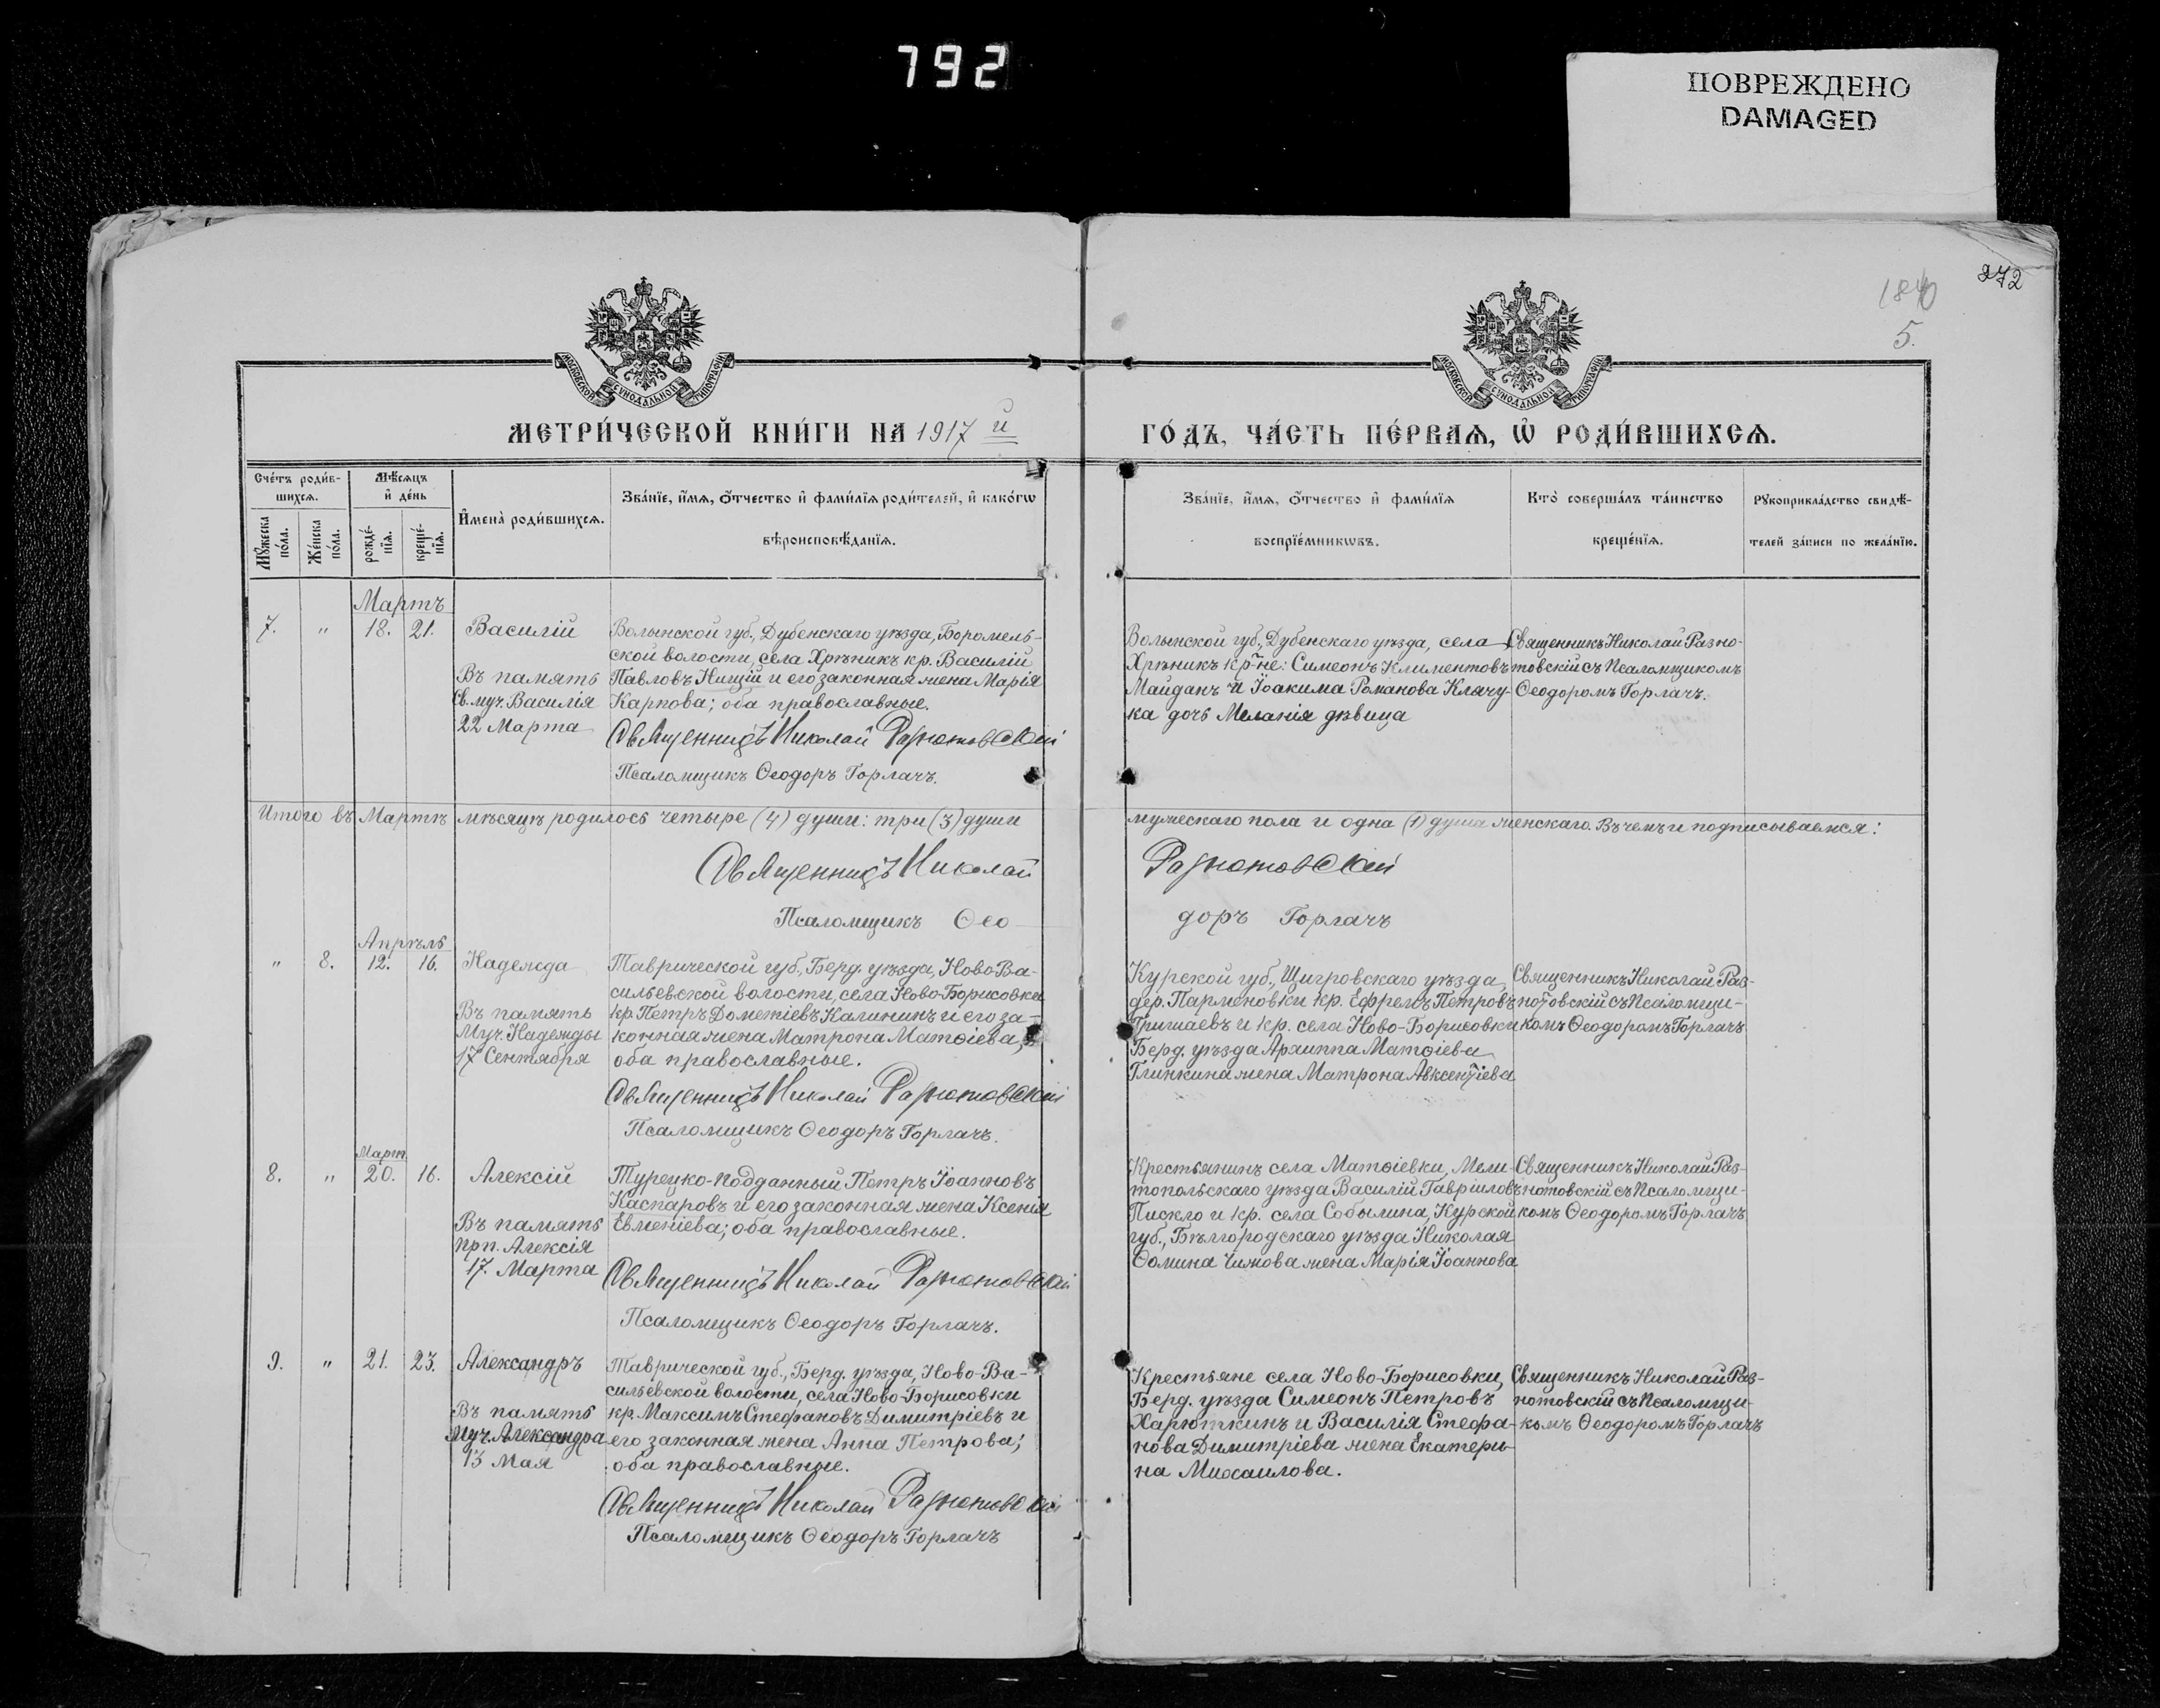 792
ПОВРЕЖДЕНО
DAMAGED
272
1840
5.
МОСКОВСКОЙ СУНОДАЛЬНОЙ ТИПОГРАФІИ
МОСКОВСКОЙ СУНОДАЛЬНОЙ ТИПОГРАФІИ
МЕТРИ́ЧЕСКОЙ КНИ́ГИ НА 1917 й
ГО́ДЪ, ЧА́СТЬ ПЕ́РВАѦ, Ѡ҆ РОДИ́ВШИХСѦ.
Сче́тъ роди́в-
шихсѧ.
Мꙋ́жеска
по́ла.
Же́нска
по́ла.
Мѣ́сѧцъ
и҆ де́нь
рожде́-
нїѧ.
креще́-
нїѧ.
И҆мена̀ роди́вшихсѧ.
Зва́нїе, и҆́мѧ, ѻ҆́тчество и҆ фами́лїѧ роди́телей, и҆ како́гѡ
вѣроисповѣ́данїѧ.
Зва́нїе, и҆́мѧ, ѻ҆́тчество и҆ фами́лїѧ
воспрїе́мникѡвъ.
Кто̀ соверша́лъ та́инство
креще́нїѧ.
Рꙋкоприкла́дство свидѣ́-
телей за́писи по жела́нїю.
Мартъ
7.
"
18.
21.
Василій
Въ память
Св. муч. Василія
22 Марта
Волынской губ., Дубенскаго уѣзда, Боромель-
ской волости, села Хрѣникъ кр. Василій
Павловъ Нищій и его законная жена Марія
Карпова; оба православные.
Священникъ Николай Разнотовскій
Псаломщикъ Ѳеодоръ Горлачъ.
Волынской губ., Дубенскаго уѣзда, села
Хрѣникъ кр-не: Симеонъ Климентовъ
Майданъ и Іоакима Романова Клачу-
ка дочь Меланія дѣвица
Священникъ Николай Разно-
товскій съ Псаломщикомъ
Ѳеодоромъ Горлачъ.
Итого въ Мартѣ мѣсяцѣ родилось четыре (4) души: три (3) души
мужескаго пола и одна (1) душа женскаго. Въ чемъ и подписываемся:
Священникъ Николай
Разнотовскій
Псаломщикъ Ѳео
доръ Горлачъ
Апрѣль
"
8.
12.
16.
Надежда
Въ память
Муч. Надежды
17 Сентября
Таврической губ., Берд. уѣзда, Ново-Ва-
сильевской волости, села Ново-Борисовки
кр. Петръ Дометіевъ Калининъ и его за-
конная жена Матрона Матѳіева,
оба православные.
Священникъ Николай Разнотовскій
Псаломщикъ Ѳеодоръ Горлачъ.
Курской губ., Щигровскаго уѣзда,
дер. Парменовки кр. Ефремъ Петровъ
Гришаевъ и кр. села Ново-Борисовки
Берд. уѣзда Архиппа Матѳіева
Глинкина жена Матрона Авксентіева
Священникъ Николай Раз-
нотовскій съ Псаломщи-
комъ Ѳеодоромъ Горлачъ
Март.
8.
"
20.
16.
Алексій
Въ память
прп. Алексія
17. Марта
Турецко-подданный Петръ Іоанновъ
Каспаровъ и его законная жена Ксенія
Евменіева; оба православные.
Священникъ Николай Разнотовскій
Псаломщикъ Ѳеодоръ Горлачъ.
Крестьянинъ села Матѳіевки, Мели-
топольскаго уѣзда Василій Гавріиловъ
Пискло и кр. села Собылина, Курской
губ., Бѣлгородскаго уѣзда Николая
Ѳомина Чижова жена Марія Іоаннова
Священникъ Николай Раз-
нотовскій съ Псаломщи-
комъ Ѳеодоромъ Горлачъ
9.
"
21.
23.
Александръ
Въ память
муч. Александра
13 Мая
Таврической губ., Берд. уѣзда, Ново-Ва-
сильевской волости, села Ново-Борисовки
кр. Максимъ Стефановъ Димитріевъ и
его законная жена Анна Петрова;
оба православные.
Священникъ Николай Разнотовскій
Псаломщикъ Ѳеодоръ Горлачъ
Крестьяне села Ново-Борисовки,
Берд. уѣзда Симеонъ Петровъ
Харюткинъ и Василія Стефа-
нова Димитріева жена Екатери-
на Михаилова.
Священникъ Николай Раз-
нотовскій съ Псаломщи-
комъ Ѳеодоромъ Горлачъ